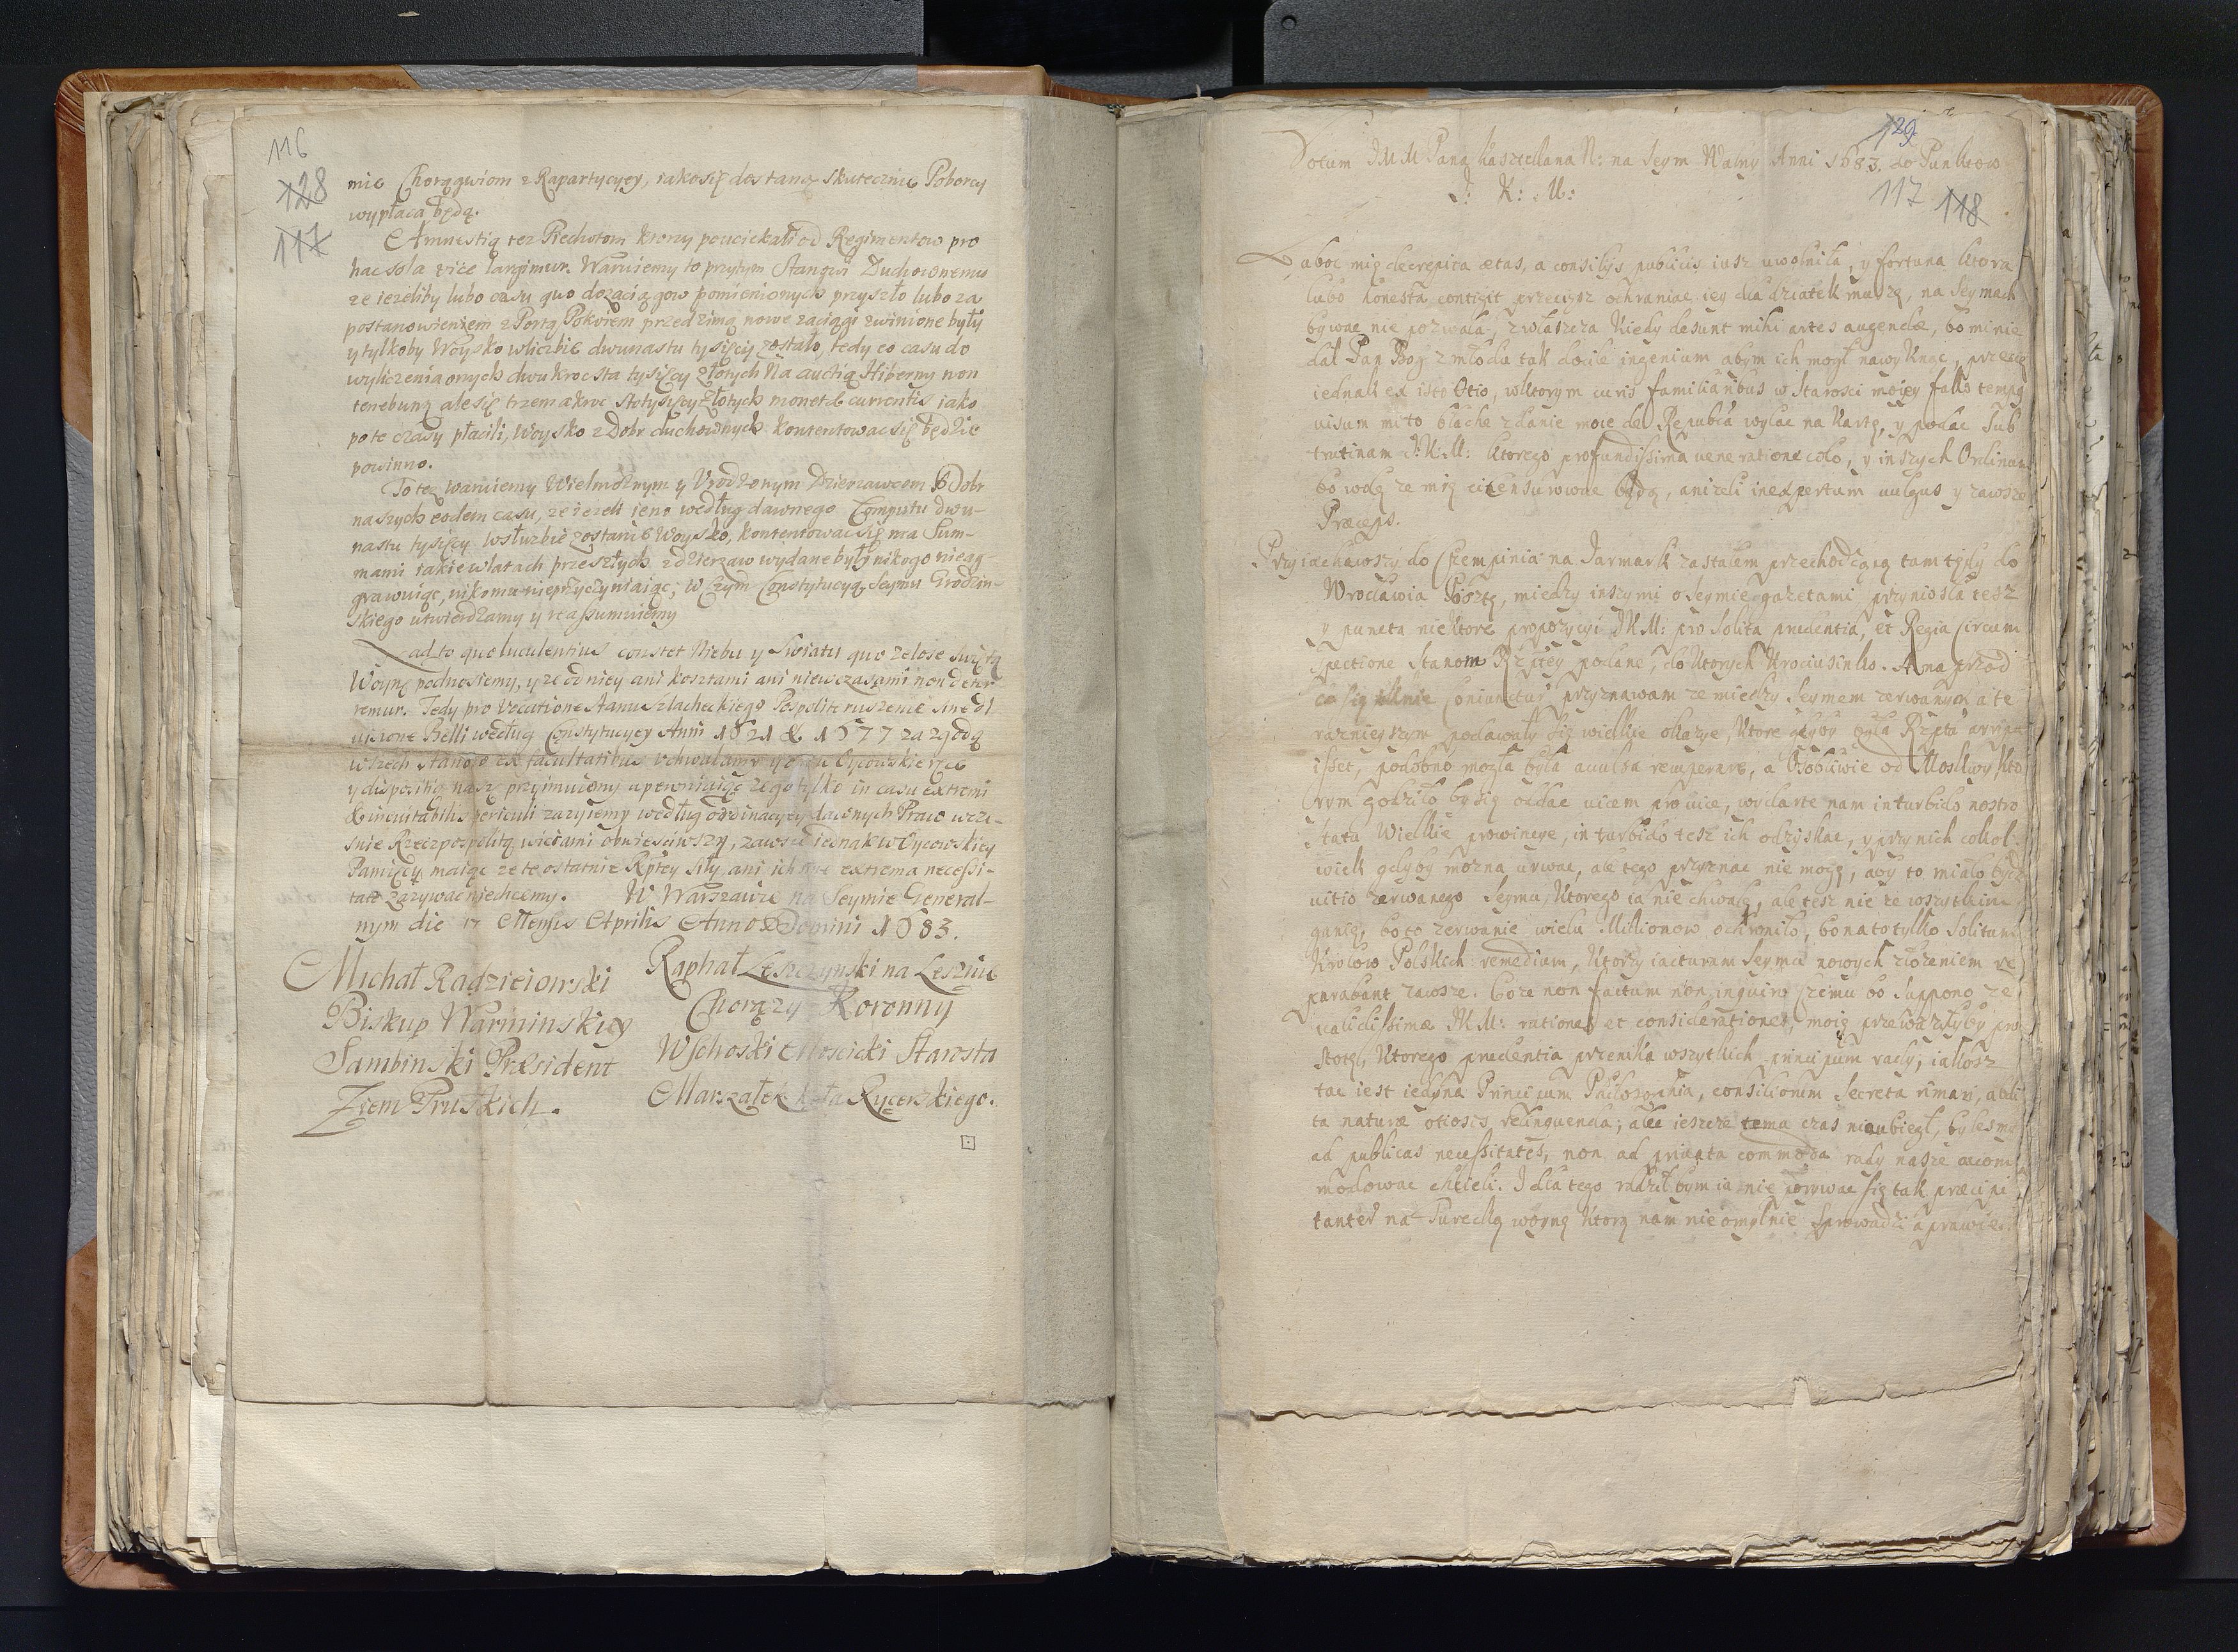 116
128
117
mie Chorągwiom z Rapartycyey, iakosię dostaną skutecznie Poborcy
wypłaca będą.
Amnestią tez Piechotom ktorzy pouciekali od Regimentow pro
hac sola vice largimur. Waruiemy to przytym Stanowi Duchownemu
ze iezeliby lubo casu quo dozaciągow pomienionych przyszło lubo za
postanowieniem z Portą Pokoiem przed zimą nowe zaciągi zwinione były
y tylkoby Woysko wliczbie dwunastu tysięcy zostało, tedy eo casu do
wyliczenia onych dwukroc sta tysięcy złotych Na auctią Hiberny non
tenebunt ale się trzema kroc stotysięcy złotych monetæ currentis iako
po te czasy płacili, Woysko z Dobr duchownych kontentowac się będzie
powinno.
To tez waruiemy Wielmoznym y Vrodzonym Dzierzawcom Dobr
naszych eodem casu, ze iezeli ieno według dawnego Computu dwu-
nastu tysięcy wsłuzbie zostanie Woysko, kontentowac się ma Sum-
mami iakie wlatach przeszłych zdzierzaw wydane były nikogo nieag-
grawuiąc, nikomu nieprzyczyniaiąc; w czym Constytucyą Seymu Grodzin-
skiego utwierdzamy y reassumuiemy
Zad to quo luculentius constet Niebu y Swiatu quo zelose Swiętą
Woynę podnosiemy, y ze od niey ani kosztami ani niewczasami non deter-
remur. Tedy pro vocatione stanu szlacheckiego Pospolite ruszenie sine di
uisione Belli według Constytucyey Anni 1621 & 1677 za zgodą
wszech stanow ex facultatibus vchwalamy y onę Oycowskie ręce
y dispositią naszą przyimuiemy upewniaiąc ze go tylko in casu extremi
& ineuitabilis periculi zazyiemy według ordinacyey dawnych Praw wcze-
snie Rzeczpospolitą wiciami obwiesciwszy, zawsze iednak w Oycowskiey
Pamięcy maiąc ze te ostatnie Rptey siły ani ich extrema necessi-
tate zazywac niechcemy. W Warszawie na Seymie General-
nym die 17 Mensis Aprilis Anno Domini 1683.
Michał Radzieiowski
Biskup Warminski y
Sambinski Præsident
Ziem Pruskich.
Raphał Leszczynski na Lesznie
Chorązy Koronny
Wschoski Moscicki Starosta
Marszałek koła Rycerskiego.
129
Votum JMM Pana Kasztellana N: na Seym Walny Anni 1683. do Punktow
J: K: M:
117 118
Luboc mię decrepita ætas, a consilijs publicis iusz uwolniła, y fortuna ktora
lubo honesta contigit przeciesz ochraniac iey dla dziatek muszę, na Seymach
bywac nie pozwala, zwłaszcza kiedy desunt mihi artes augendæ, bo mi nie
dał Pan Bog zmłodu tak docile ingenium abym ich mogł nawyknąc, przecię
iednak ex isto Otio, wktorym curis familiaribus w starosci moiey fallo tempg
uisum mi to błache zdanie moie de Republa wylac na kartę, y podac Sub
trutinam J:K:M: ktorego profundissima ueneratione colo, y inszych Ordinum
bo wolę ze mię ci censurowac będą, anizeli inexpertum uulgus y zawsze
Præceps.
Przyiachawszy do Czempinia na Jarmark zastałem przechodzącą tam tędy do
Wrocławia Posztę, miedzy inszymi o Seymie gazetami przyniosła tesz
y puncta niektore propozycyi JKM: pro Solita prudentia, et Regia Circum
spectione Stanom Rzptey podane, do ktorych krociusinko. A na przod
co się tknie Coniunctur przyznawam ze miedzy Seymem zerwanym a te
raznieyszym podawały się wielkie okazye, ktore gdyby była Rzpta arripu
isset, podobno mogła była auulsa recuperare, a Osobliwie od Moskwy, kto
rym godziło by się oddac uicem pro uice, wydarte nam in turbido nostro
statu Wielkie prowincye, in turbido tesz ich odzyskac, y przy nich cokol-
wiek gdyby mozna urwac, ale tego przyznac nie mogę, aby to miało bydz
uitio zerwanego Seymu, ktorego ia nie chwalę, ale tesz nie ze wszytkim
ganię, bo to zerwanie wielu Milionow ochroniło, bo na to tylko Solitum
Krolow Polskich remedium, ktorzy iacturam Seymu nowych złozeniem re
parabant zawsze. Co ze non factum non inquiro czemu bo Suppono ze
ualidissimæ JKM: rationes et considerationes, moię przewazyłyby pro
stotę, ktorego prudentia przenika wszytkich principum rady, iakosz
tac iest iedyna Principum Philosophia, consiliorum Secreta rimari, abdi
ta naturæ otiosis relinquenda; ale ieszcze temu czas nieubiegł, bylesmy
ad publicas necessitates, non ad priuata commoda rady nasze accom
modowac chcieli. I dla tego radził bym ia nie porywac się tak præcipi
tanter na Turecką woynę ktorą nam nieomylnie sprowadzi a prawie